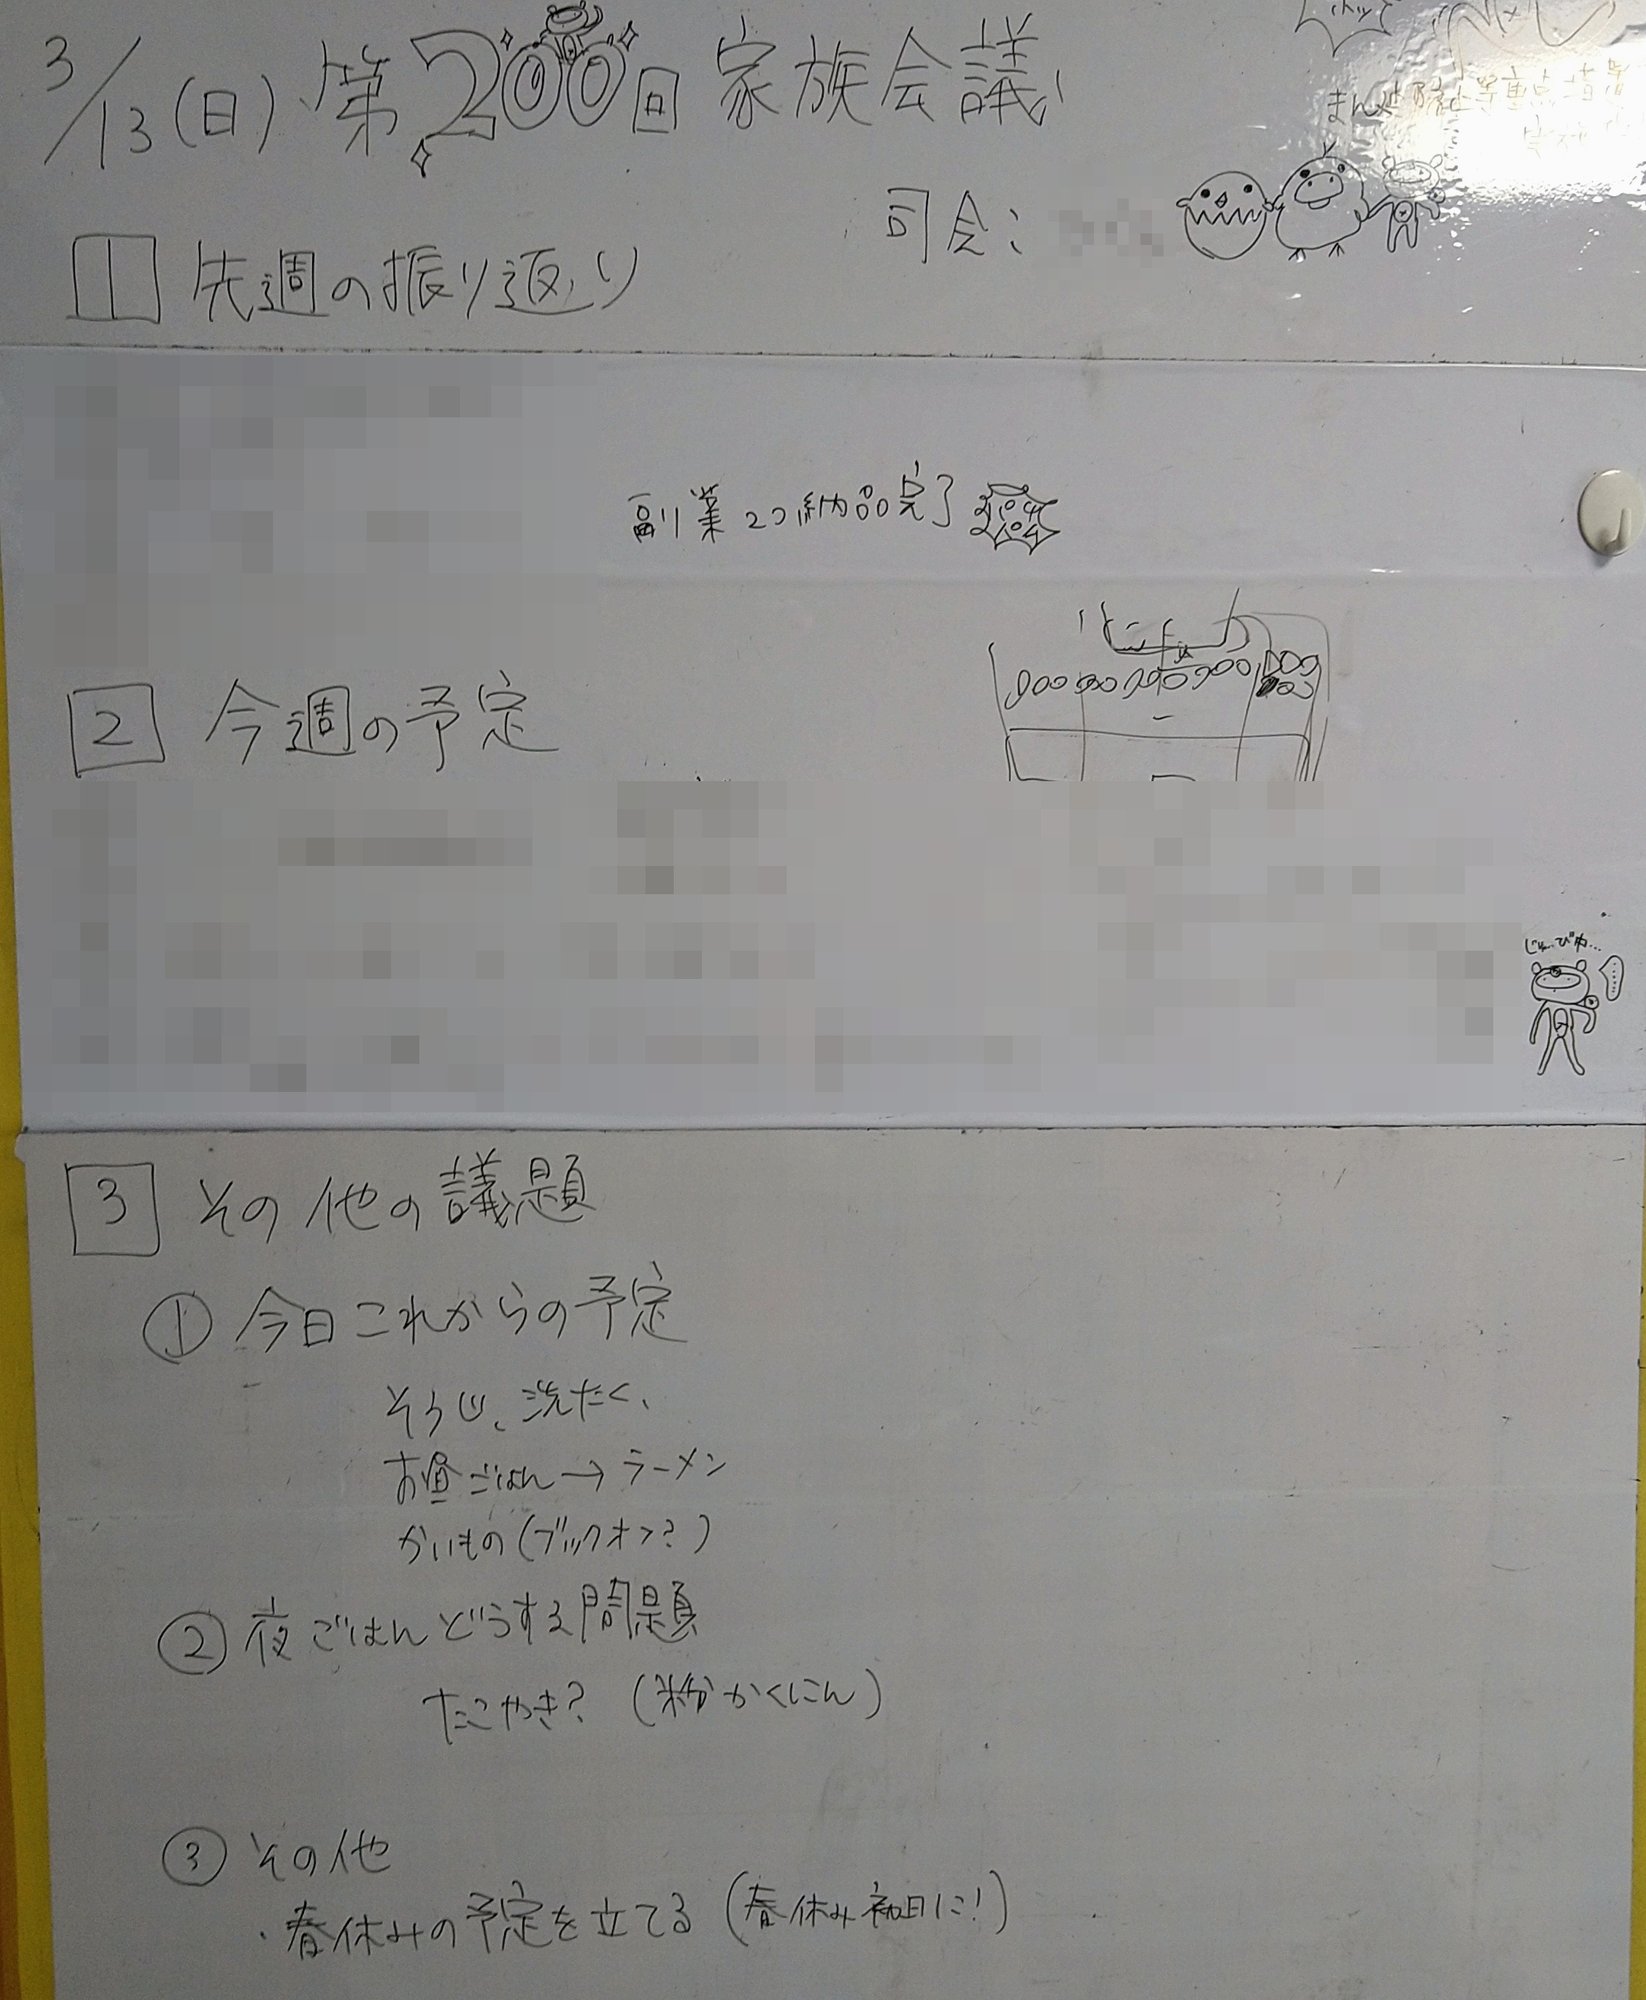 3/13(日) 第200回 家族会議
まん延防止等重点措置
司会:
1 先週の振り返り
副業2つ納品完了
2 今週の予定
3 その他の議題
① 今日これからの予定
そうじ、洗たく、
お昼ごはん→ラーメン
かいもの(ブックオフ?)
② 夜ごはんどうする問題
たこやき? (粉かくにん)
③ その他
・春休みの予定を立てる(春休み初日に!)